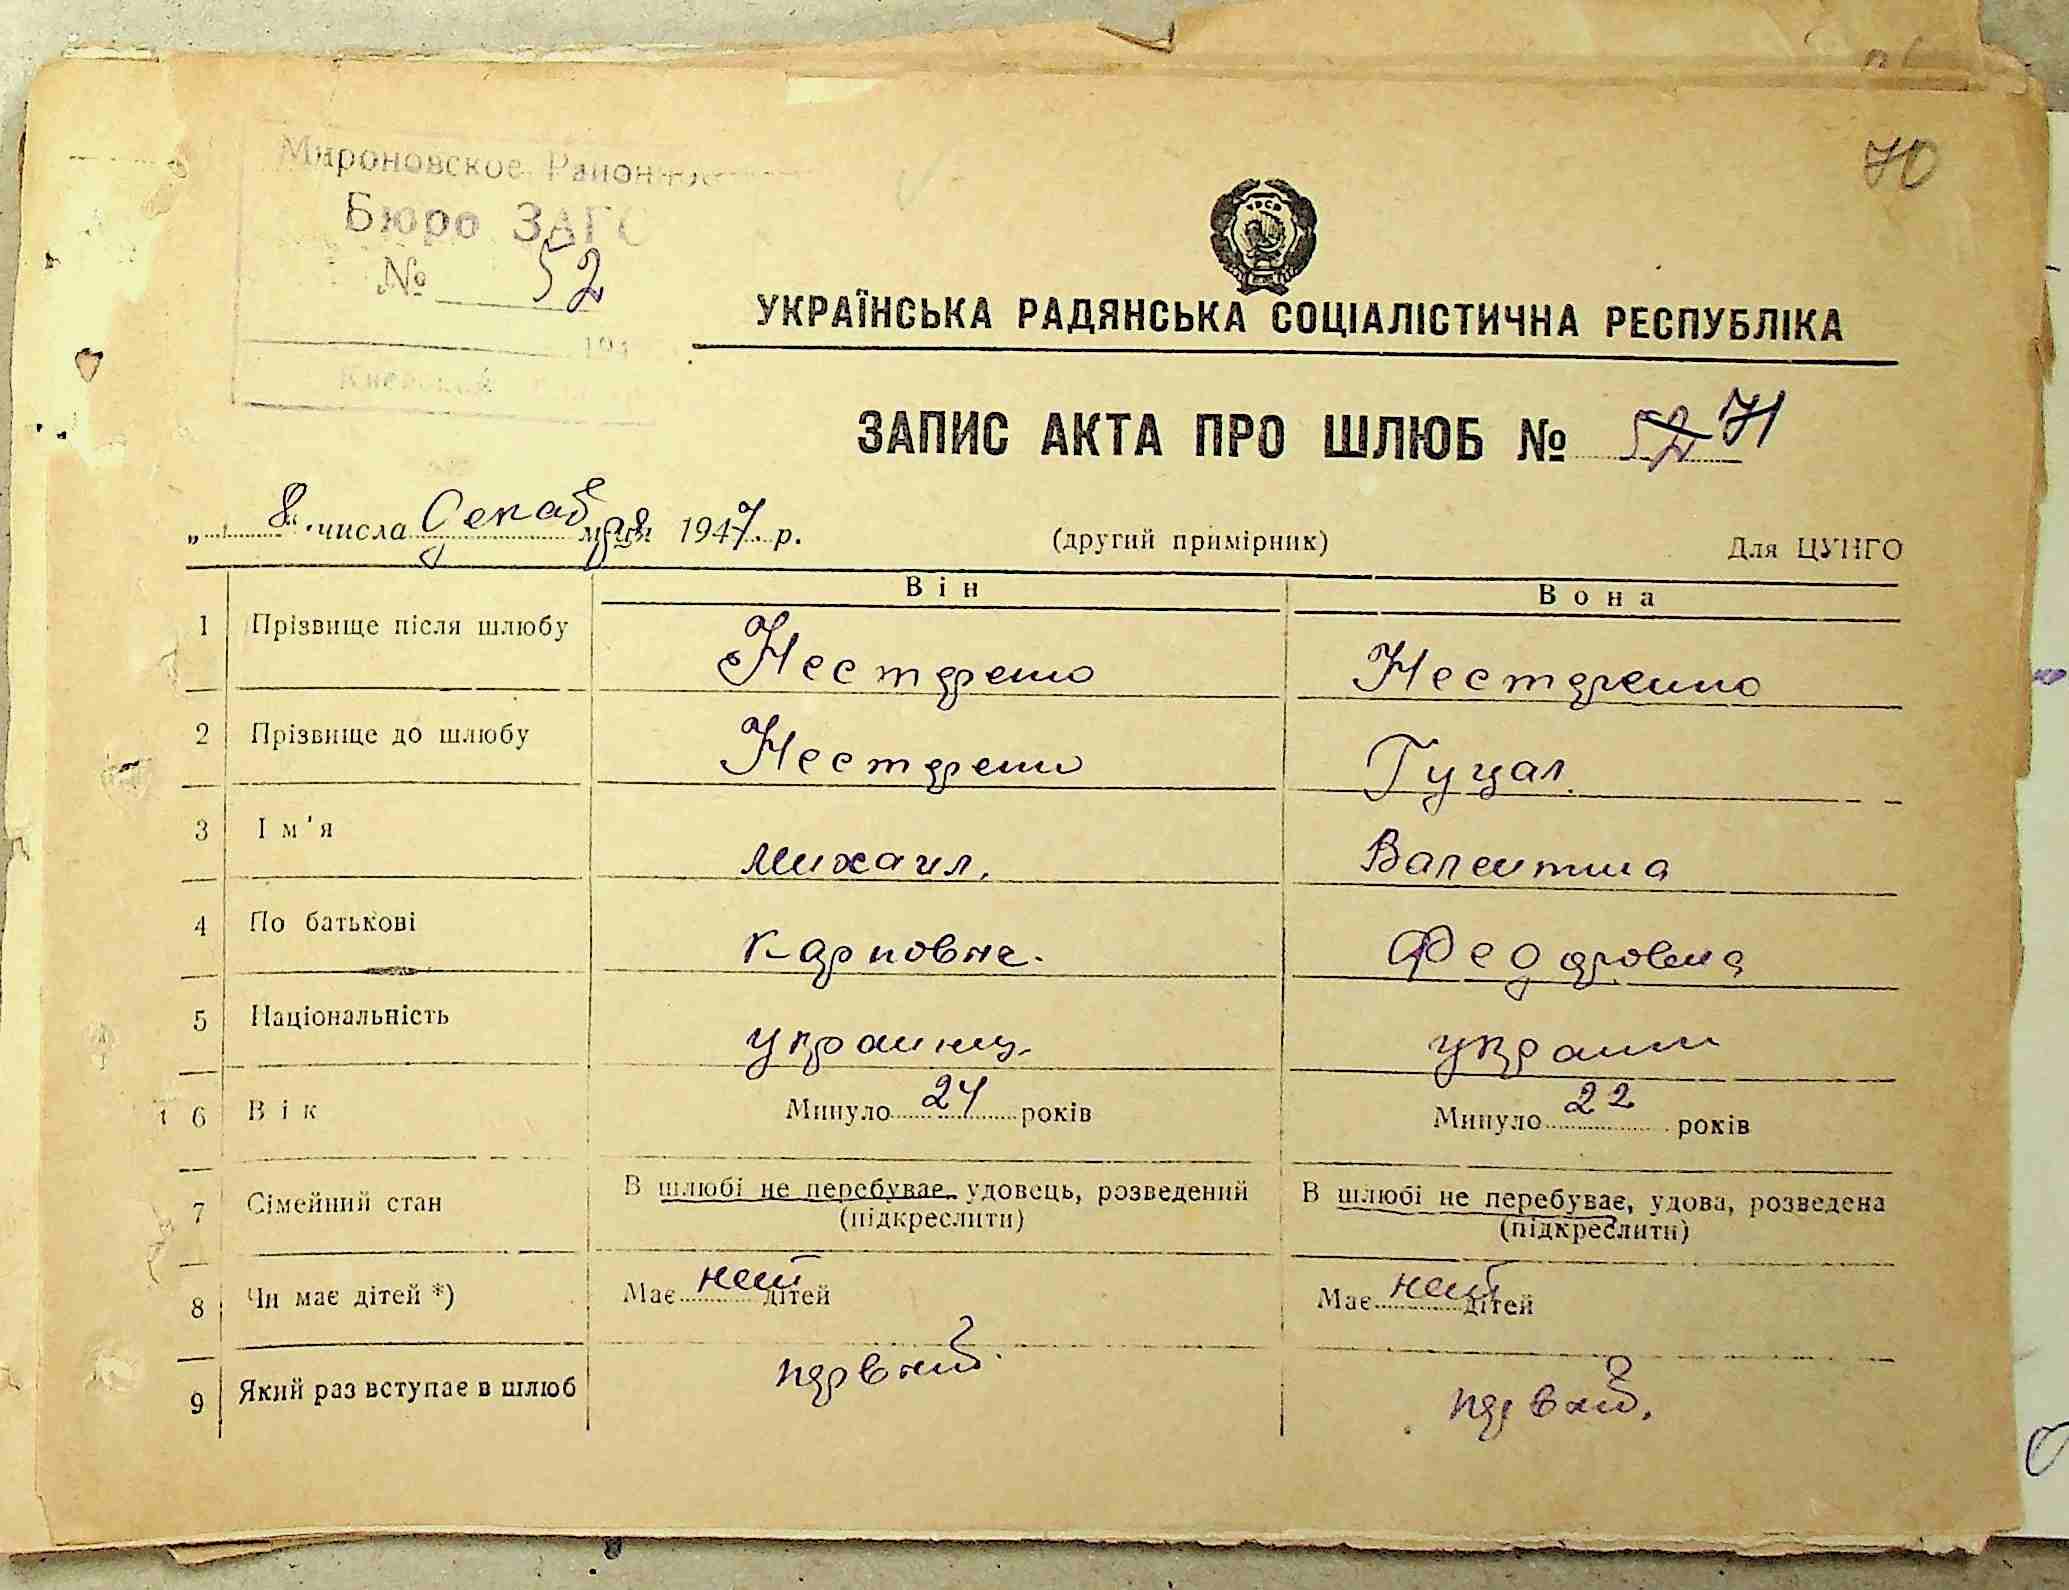 70
Мироновское Районное
Бюро ЗАГС
№ 52
194
Киевской
УКРАЇНСЬКА РАДЯНСЬКА СОЦІАЛІСТИЧНА РЕСПУБЛІКА
ЗАПИС АКТА ПРО ШЛЮБ № 52 71
„ 8 " числа декаб м-ця ря 1947 р. (другий примірник) Для ЦУНГО
Він Вона
1 Прізвище після шлюбу Нестеренко Нестеренко
2 Прізвище до шлюбу Нестеренко Гуцал.
3 Ім'я михаил. Валентина
4 По батькові Карпович. Федоровна
5 Національність украинц. украин
6 Вік Минуло 24 років Минуло 22 років
7 Сімейний стан В шлюбі не перебуває, удовець, розведений (підкреслити) В шлюбі не перебуває, удова, розведена (підкреслити)
8 Чи має дітей *) Має нет дітей Має нет дітей
9 Який раз вступає в шлюб первый первый.